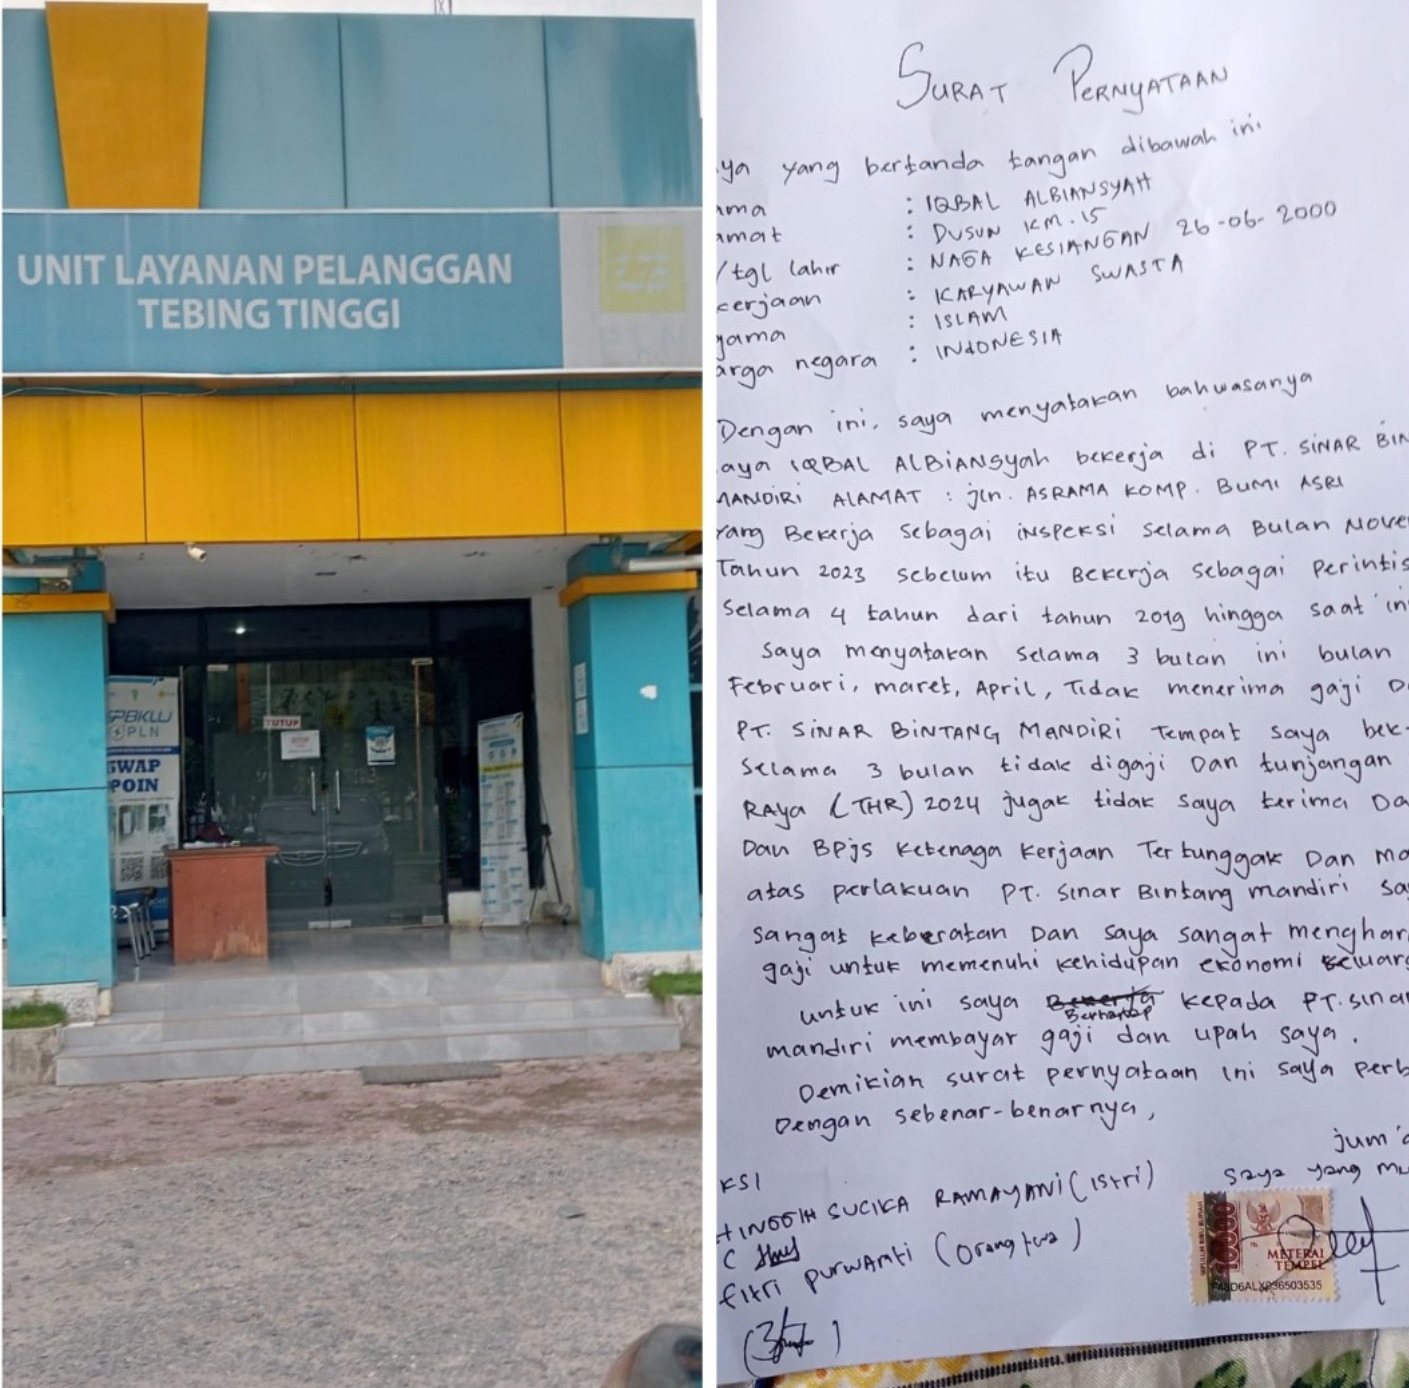 UNIT LAYANAN PELANGGAN
TEBING TINGGI
PLN
SPBKLU
PLN
SWAP
POIN
TUTUP
SURAT PERNYATAAN
ya yang bertanda tangan dibawah ini
ama : IQBAL ALBIANSYAH
amat : DUSUN KM.15
/tgl lahir : NAGA KESIANGAN 26-06-2000
kerjaan : KARYAWAN SWASTA
gama : ISLAM
arga negara : INDONESIA
Dengan ini, saya menyatakan bahwasanya
aya IQBAL ALBIANSYAH bekerja di PT. SINAR BIN
MANDIRI ALAMAT : jln. ASRAMA KOMP. BUMI ASRI
Yang Bekerja sebagai inspeksi selama Bulan Nove
Tahun 2023 sebelum itu Bekerja sebagai perintis
selama 4 tahun dari tahun 2019 hingga saat ini
saya menyatakan selama 3 bulan ini bulan
Februari, maret, April, Tidak menerima gaji D
PT. SINAR BINTANG MANDIRI Tempat saya bek-
selama 3 bulan tidak digaji Dan tunjangan
RAya (THR) 2024 jugak tidak saya terima Da
Dan BPjs Ketenaga Kerjaan Tertunggak Dan Ma
atas perlakuan PT. Sinar Bintang mandiri sa
sangat keberatan Dan saya sangat menghar
gaji untuk memenuhi kehidupan ekonomi keluarg
untuk ini saya Bekerja Berharap kepada PT.sinar
mandiri membayar gaji dan upah saya.
Demikian surat pernyataan ini saya perb
Dengan sebenar-benarnya,
jum'a
KSI saya yang mu
SUCIKA RAMAYANI (istri)
fitri purwanti (Orang tua)
SEPULUH RIBU RUPIAH
10000
METERAI
TEMPEL